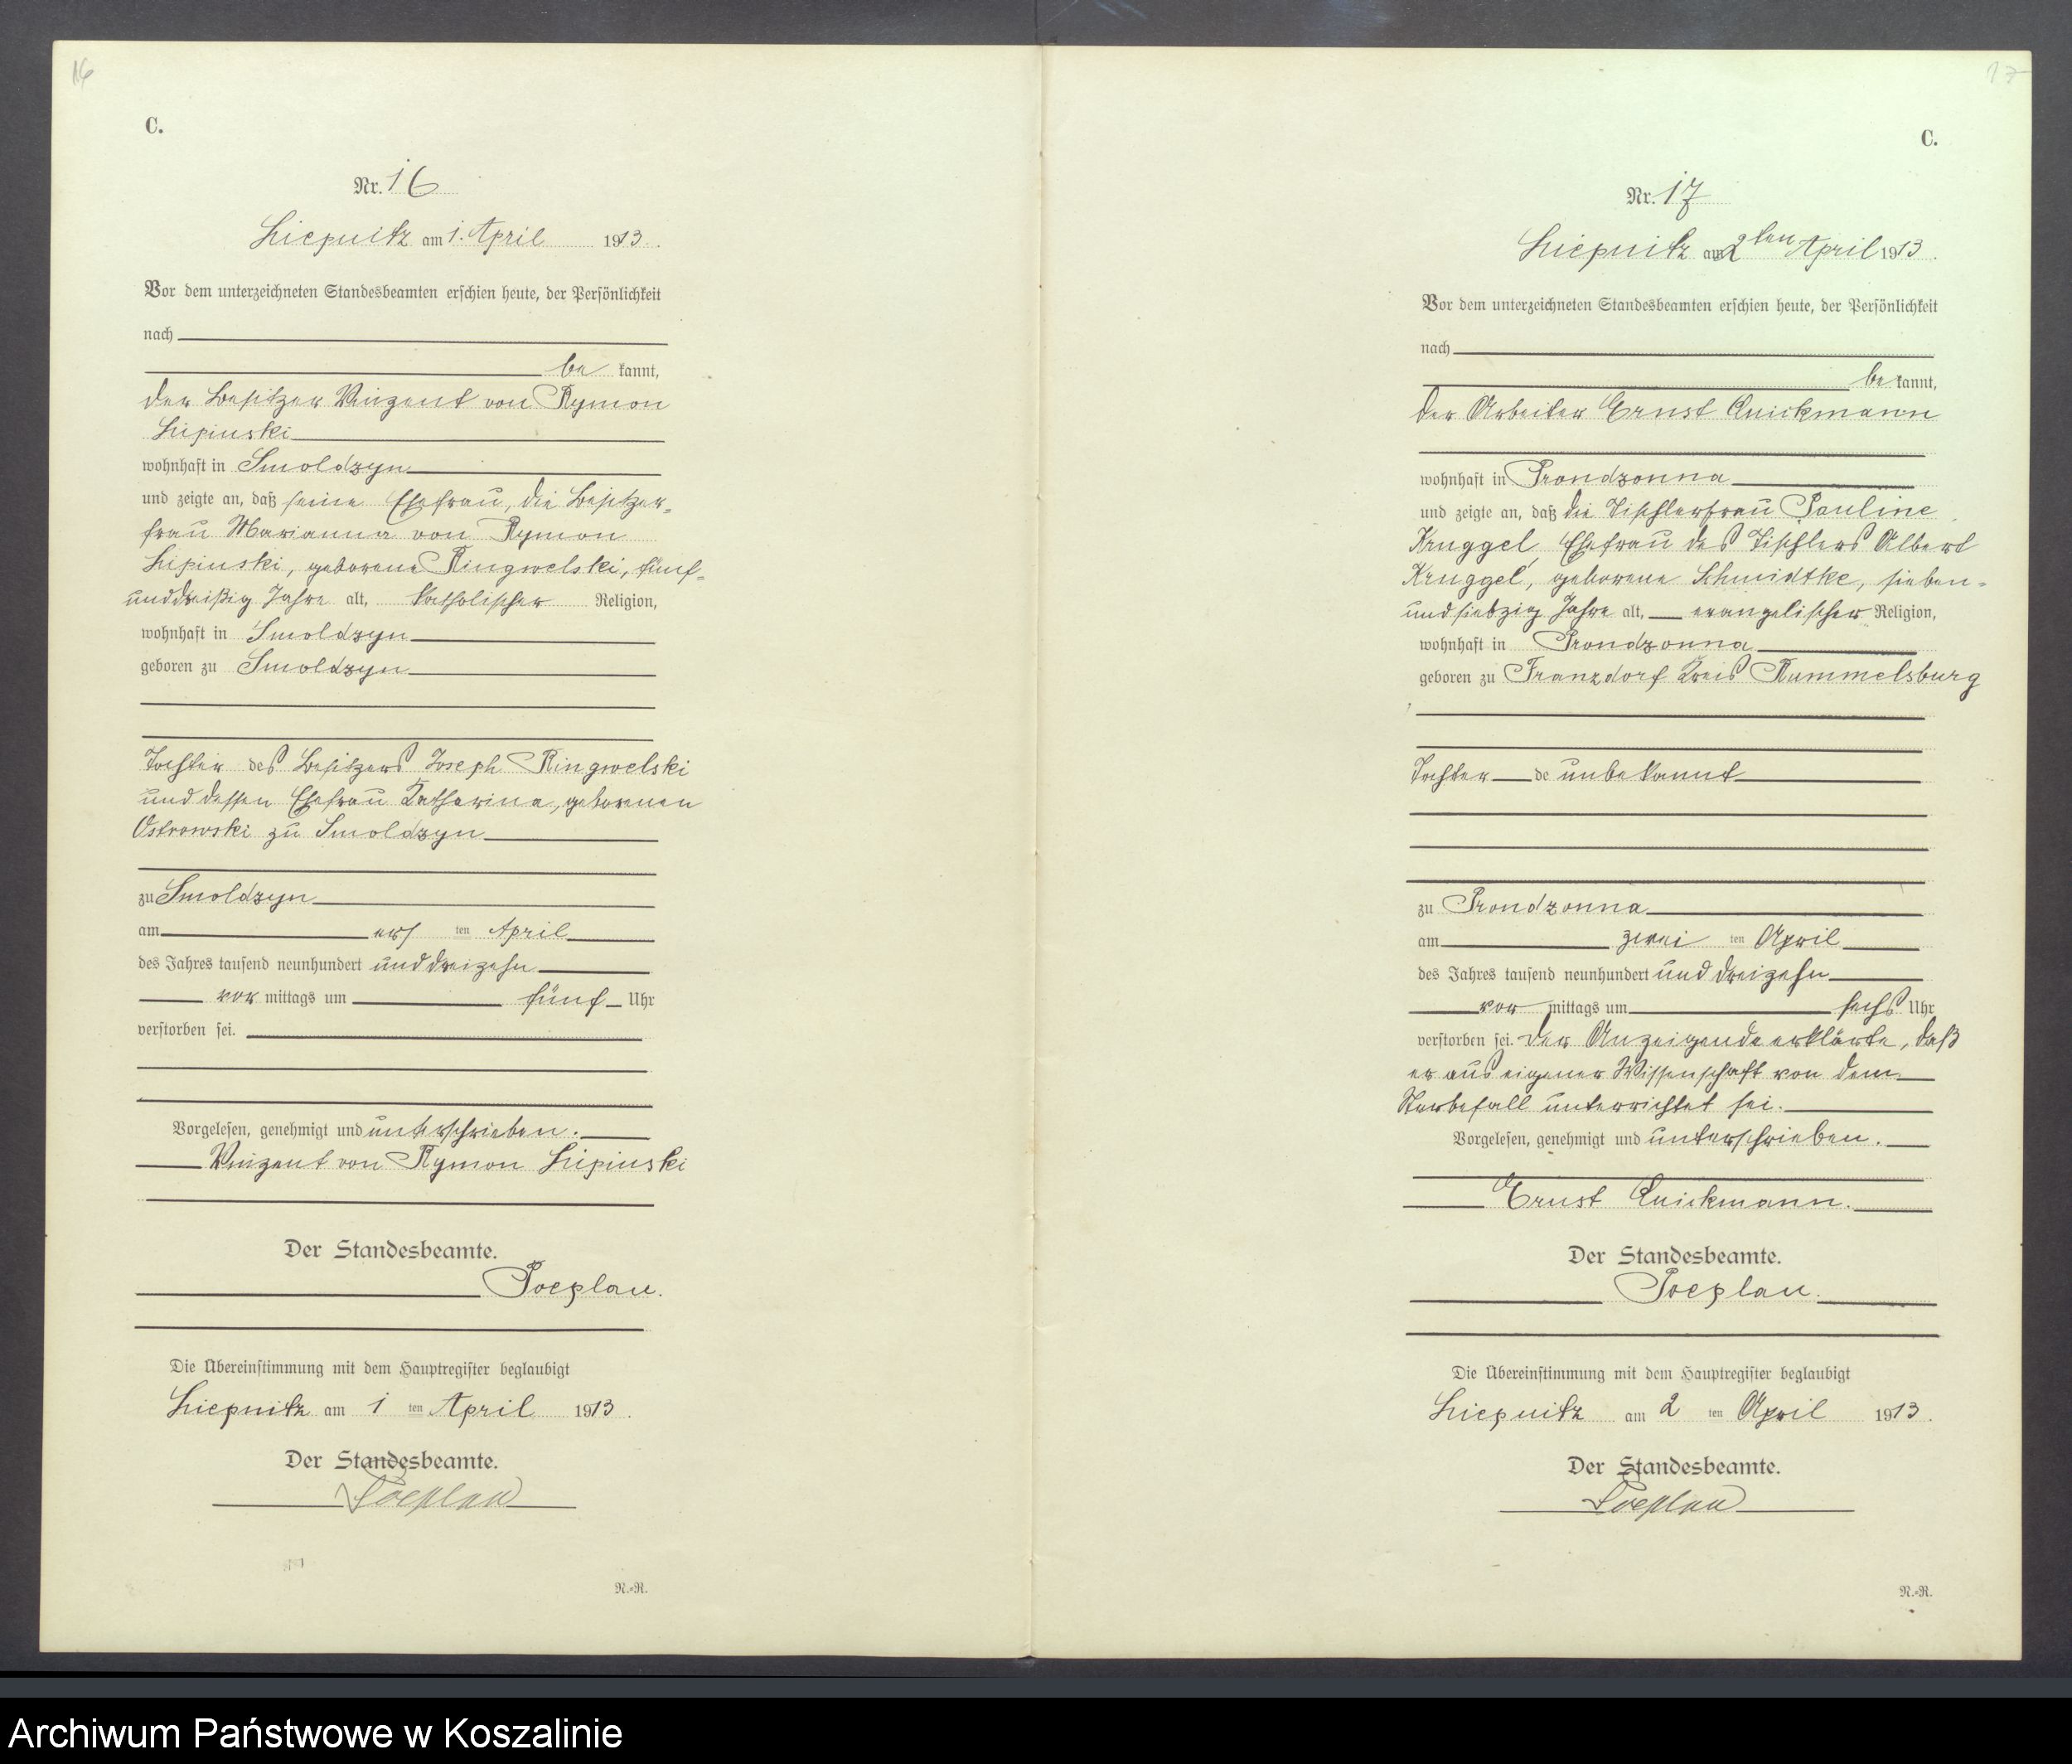 16
C.
Nr. 16
Liepnitz am 1. April 1913.
Vor dem unterzeichneten Standesbeamten erschien heute, der Persönlichkeit
nach
be kannt,
der Besitzer Vinzent von Rymon
Lipinski
wohnhaft in Smoldzyn
und zeigte an, daß seine Ehefrau, die Besitzer-
frau Marianna von Rymon
Lipinski, geborene Ringwelski, fünf-
unddreißig Jahre alt, katholischer Religion,
wohnhaft in Smoldzyn
geboren zu Smoldzyn
Tochter des Besitzers Joseph Ringwelski
und dessen Ehefrau Katharina, geborenen
Ostrowski zu Smoldzyn
zu Smoldzyn
am ers ten April
des Jahres tausend neunhundert und dreizehn
vor mittags um fünf Uhr
verstorben sei.
Vorgelesen, genehmigt und unterschrieben.
Vinzent von Rymon Lipinski
Der Standesbeamte.
Poeplau.
Die Übereinstimmung mit dem Hauptregister beglaubigt
Liepnitz am 1 ten April 1913.
Der Standesbeamte.
Poeplau
N.-R.
17
C.
Nr. 17
Liepnitz am 2ten April 1913.
Vor dem unterzeichneten Standesbeamten erschien heute, der Persönlichkeit
nach
be kannt,
der Arbeiter Ernst Quickmann
wohnhaft in Prondzonna
und zeigte an, daß die Tischlerfrau Pauline
Kruggel, Ehefrau des Tischlers Albert
Kruggel, geborene Schmidtke, sieben-
und siebzig Jahre alt, evangelischer Religion,
wohnhaft in Prondzonna
geboren zu Franzdorf Kreis Rummelsburg
Tochter de unbekannt
zu Prondzonna
am zwei ten April
des Jahres tausend neunhundert und dreizehn
vor mittags um sechs Uhr
verstorben sei. Der Anzeigende erklärte, daß
er aus eigener Wissenschaft von dem
Sterbefall unterrichtet sei.
Vorgelesen, genehmigt und unterschrieben.
Ernst Quickmann.
Der Standesbeamte.
Poeplau.
Die Übereinstimmung mit dem Hauptregister beglaubigt
Liepnitz am 2 ten April 1913.
Der Standesbeamte.
Poeplau
N.-R.
Archiwum Państwowe w Koszalinie